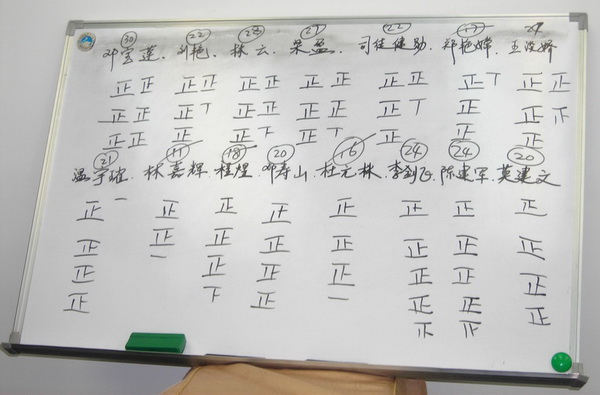 30 22 28 27 22 17 24
邓宝莲. 刘艳. 林云. 荣盈. 司徒健勋. 郑艳嫦. 王
正正 正正 正正 正正 正正 正丅 正正
正正 正丅 正正 正正 正丅 正 正
正正 正 正 正丅 正 正 正
21 11 18 20 16 24 24 20
温宇 林嘉辉. 桂煜 邓寿山. 杜元林. 李剑飞. 陈建军. 莫建文
一
正 正 正 正 正 正 正 正
正 正 正 正 正 正 正 正
正 一 正 正 正 正 正 正
正 正 一 正 正 正